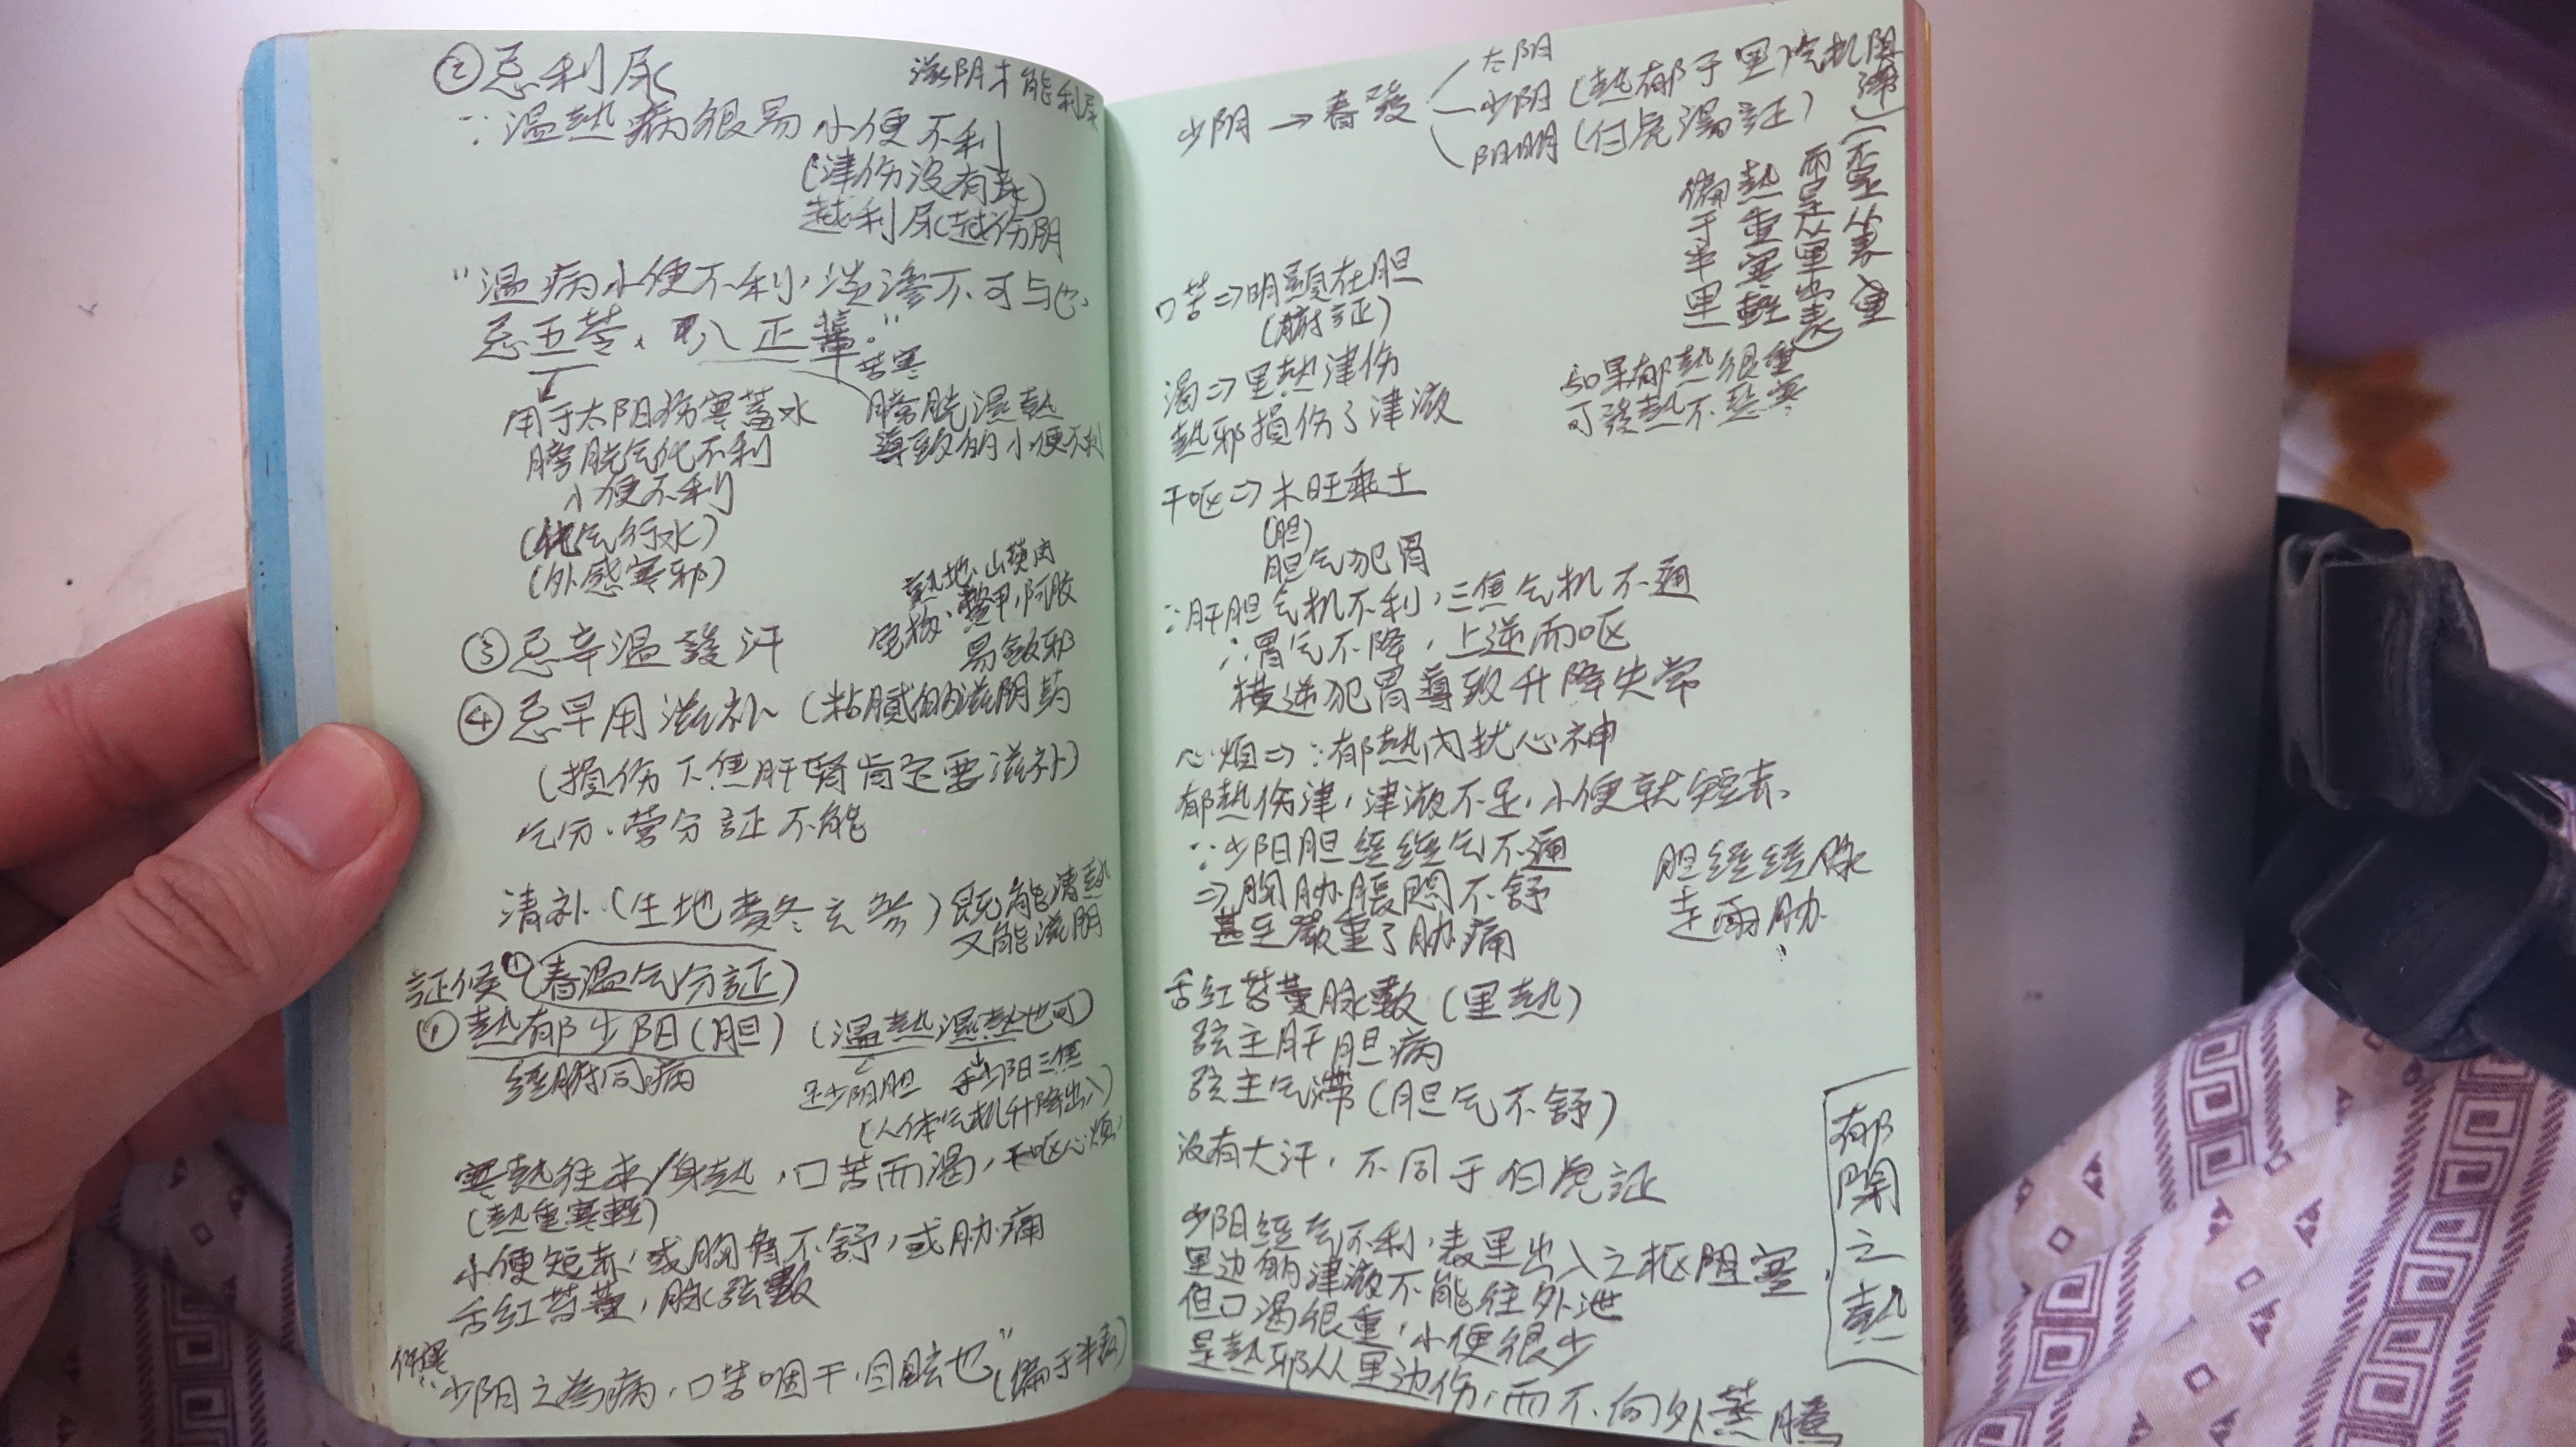 ②忌利尿
滋阴才能利尿
∵温熱病很易小便不利
(津伤没有尿)
越利尿越伤阴
"温病小便不利,淡渗不可与也,
忌五苓、八正輩。"
苦寒
用于太阳伤寒蓄水
膀胱气化不利
小便不利
(化气行水)
(外感寒邪)
膀胱濕熱
導致的小便不利
③忌辛温發汗
熟地、山萸肉
鳖甲,阿胶
易歛邪
④忌早用滋补 (粘腻的滋阴药
(损伤下焦肝腎肯定要滋补)
气分、营分証不能
清补(生地麦冬玄参)既能清熱
又能滋阴
証候①(春温气分証)
①熱郁少阳(胆) (温熱濕熱也可)
經腑同病
足少阳胆 手少阳三焦
(人体气机升降出入)
寒熱往来/身熱,口苦而渴,干呕心烦,
(熱重寒輕)
小便短赤,或胸脅不舒,或胁痛
舌红苔黄,脉弦數
伤寒:少阳之為病,口苦咽干,目眩也"(偏于半表)
少阴→春發
太阳
少阳(熱郁于里,气机阻滞)
阳明(白虎湯証)
(不是从表入里
而是从里出表)
熱重寒輕
偏于半里
如果郁熱很重
可發熱不恶寒
口苦⇒明顯在胆
(腑証)
渴⇒里熱津伤
熱邪損伤了津液
干呕⇒木旺乘土
(胆)
胆气犯胃
∵肝胆气机不利,三焦气机不通
∴胃气不降,上逆而呕
横逆犯胃導致升降失常
心烦⇒∵郁熱内扰心神
郁熱伤津,津液不足,小便就短赤.
∵少阳胆經經气不通
⇒胸胁脹悶不舒
甚至嚴重了胁痛
胆經經脉
走兩胁
舌红苔黄脉數(里熱)
弦主肝胆病
弦主气滞(胆气不舒)
没有大汗,不同于白虎証
少阳經气不利,表里出入之枢阻塞
里边的津液不能往外泄
但口渴很重,小便很少
是熱邪从里边伤,而不向外蒸騰
郁闭之熱